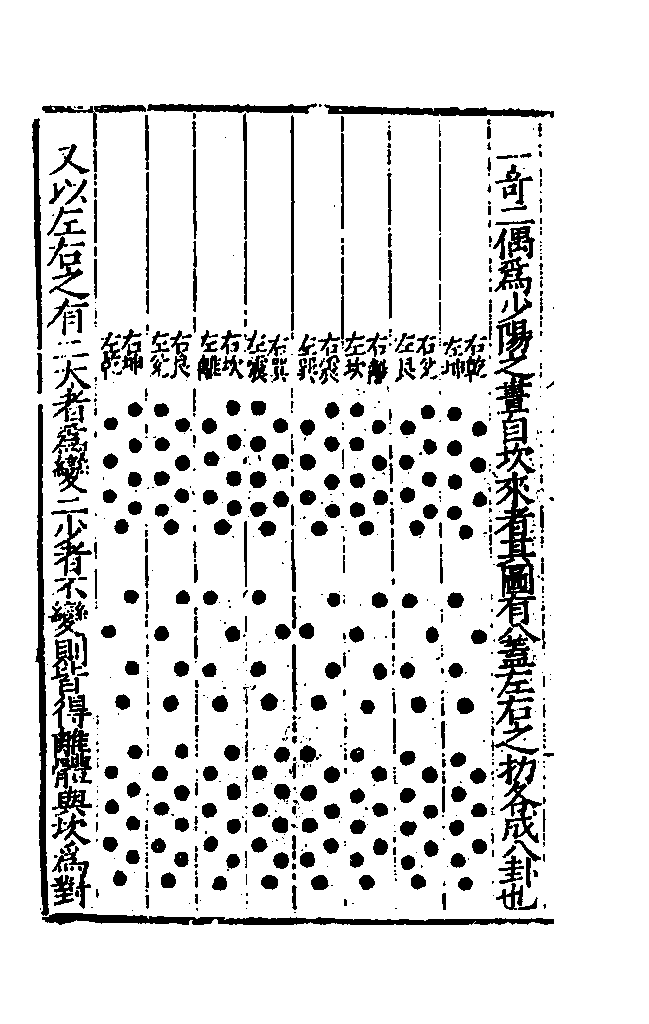 一奇二偶爲少陽之畫自坎來者其圖有八蓋左右之扐各成八卦也
右乾
左坤
右兌
左艮
右離
左坎
右震
左巽
右巽
左震
右坎
左離
右艮
左兌
右坤
左乾
又以左右之有二太者爲變二少者不變則皆得離體與坎爲對